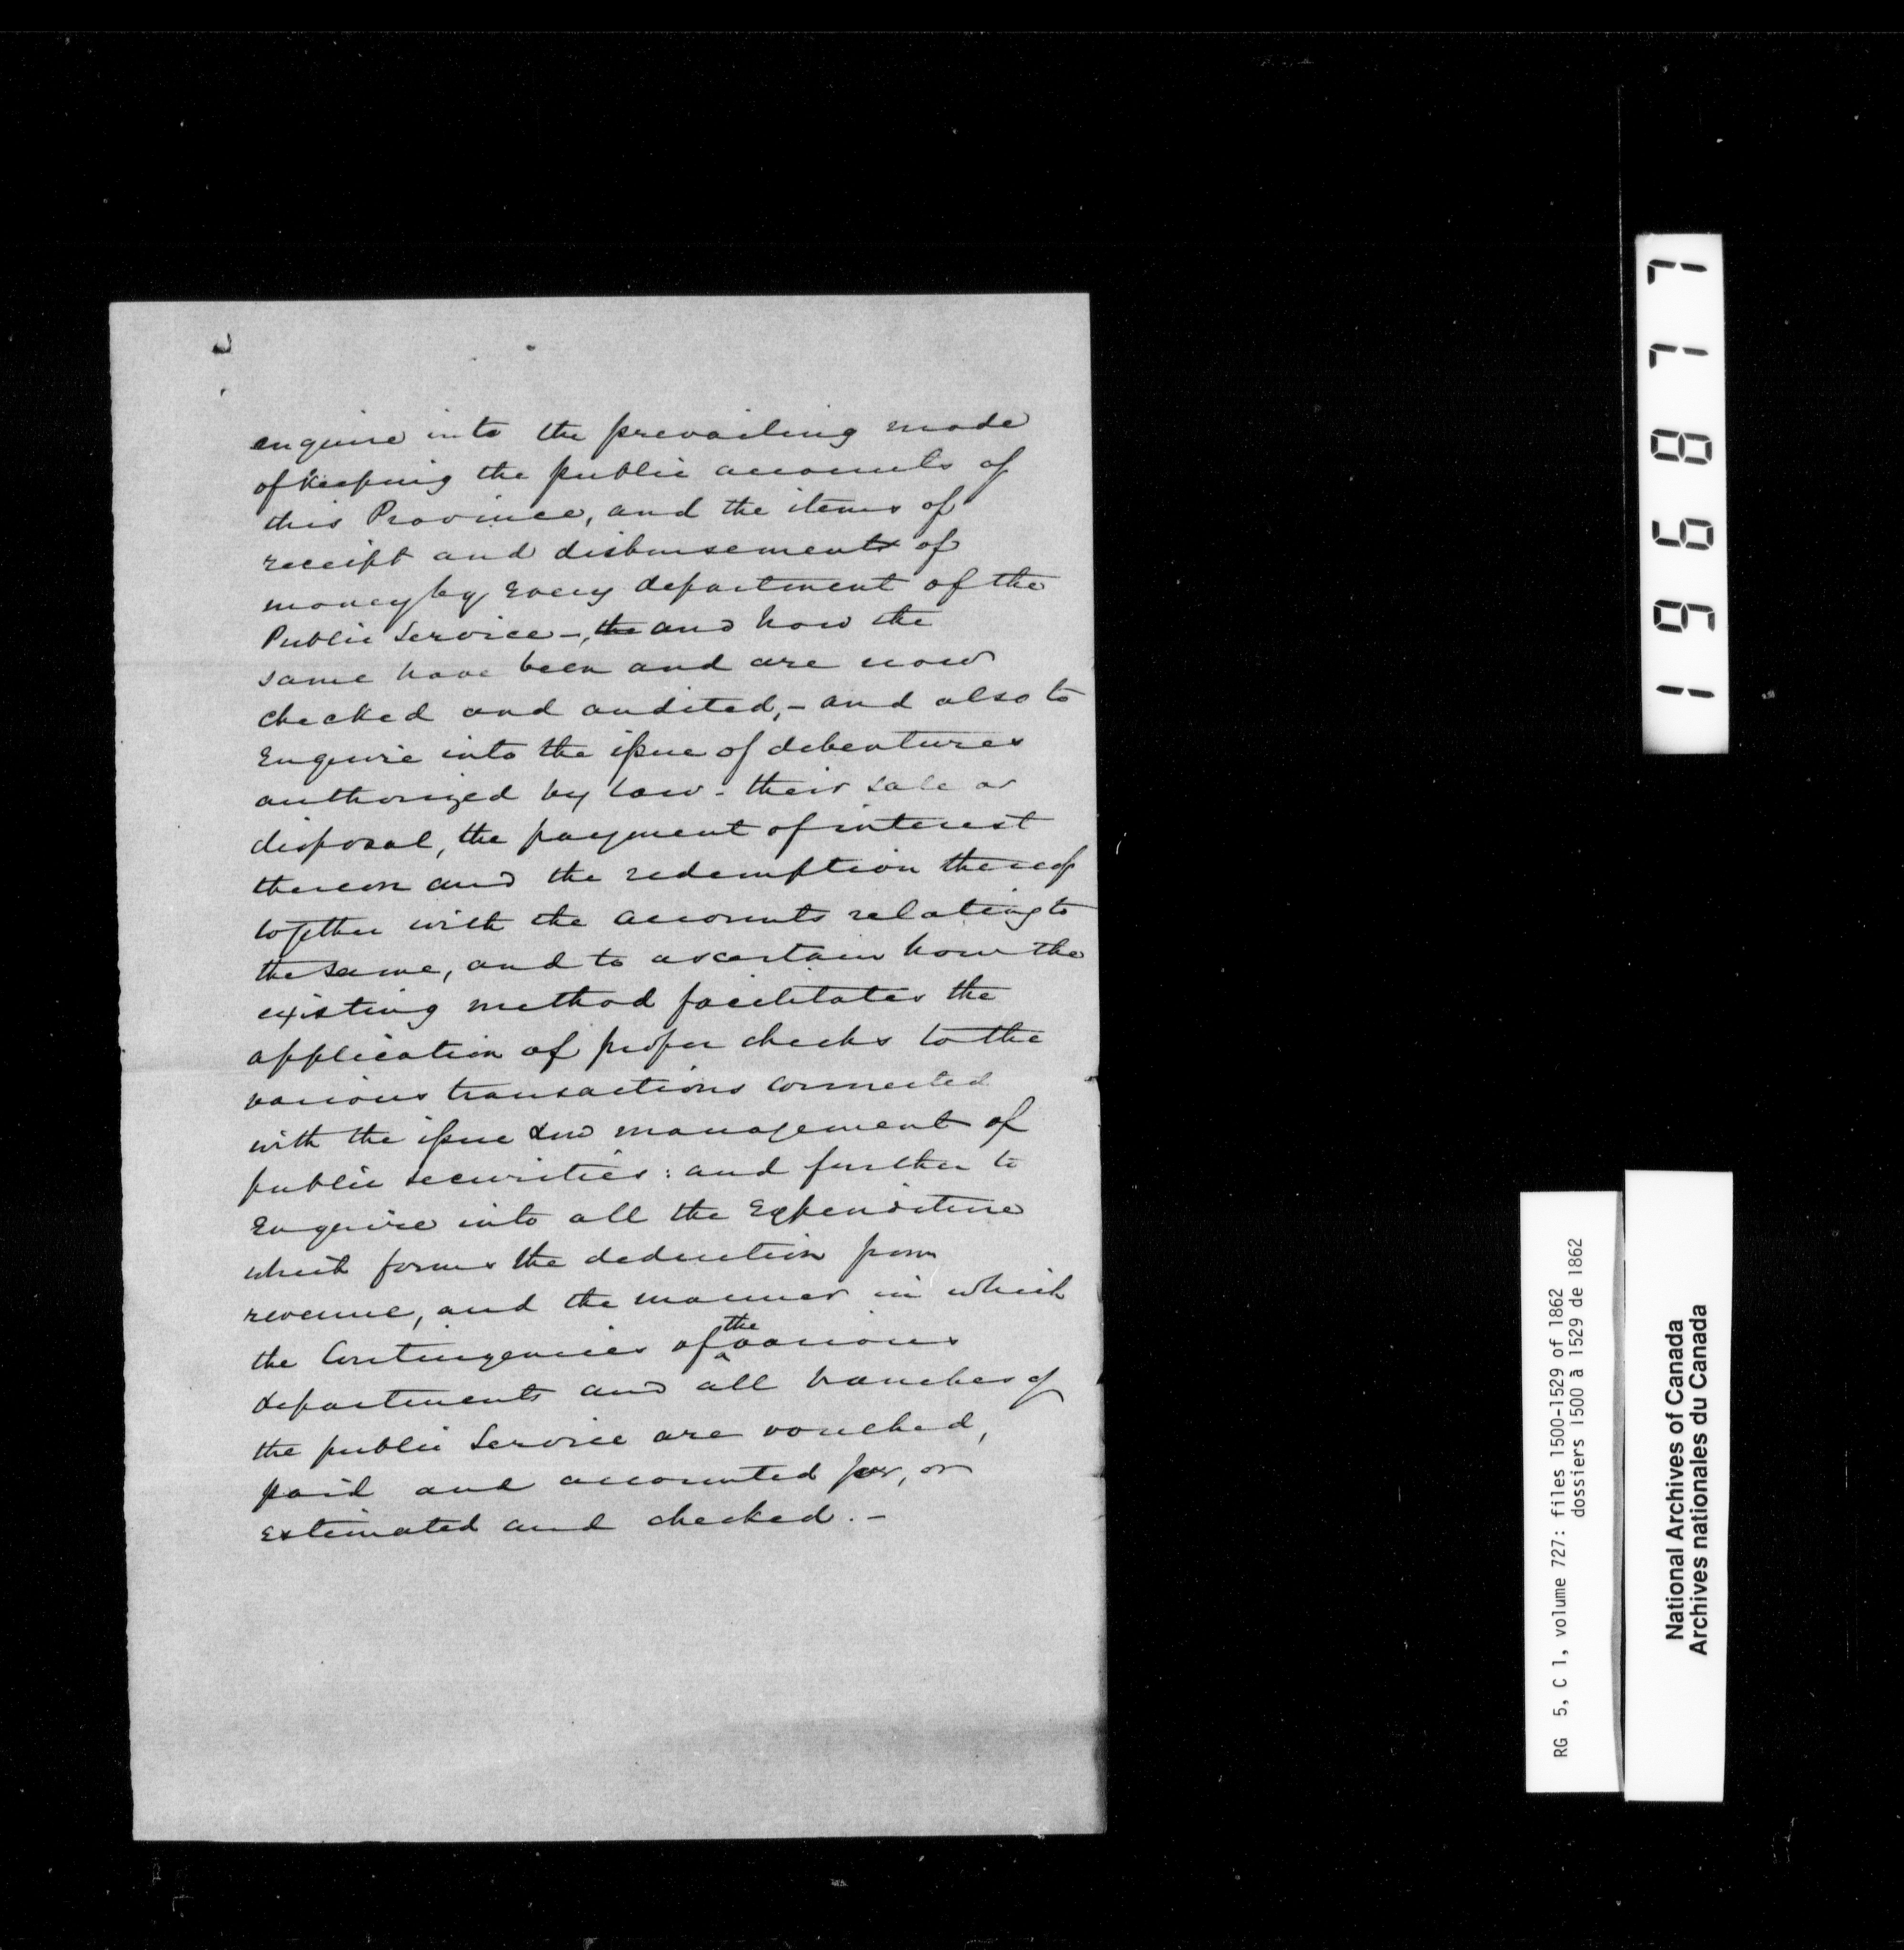 enquire into the prevailing mode
of keeping the public accounts of
this Province, and the items of
receipt and disbursement of
money by every department of the
Public Service -, the and how the
same have been and are now
checked and audited, - and also to
Enquire into the issue of debentures
authorized by law - their sale or
disposal, the payment of interest
thereon and the redemption thereof
together with the accounts relating to
the same, and to ascertain how the
existing method facilitates the
application of proper checks to the
various transactions connected
with the issue and management of
public securities: and further to
Enquire into all the Expenditure
which forms the deduction from
revenue, and the manner in which
the Contingencies of the various
departments and all branches of
the public Service are vouched,
paid and accounted for, or
estimated and checked. -
196877
RG 5, C 1, volume 727: files 1500-1529 of 1862
dossiers 1500 à 1529 de 1862
National Archives of Canada
Archives nationales du Canada